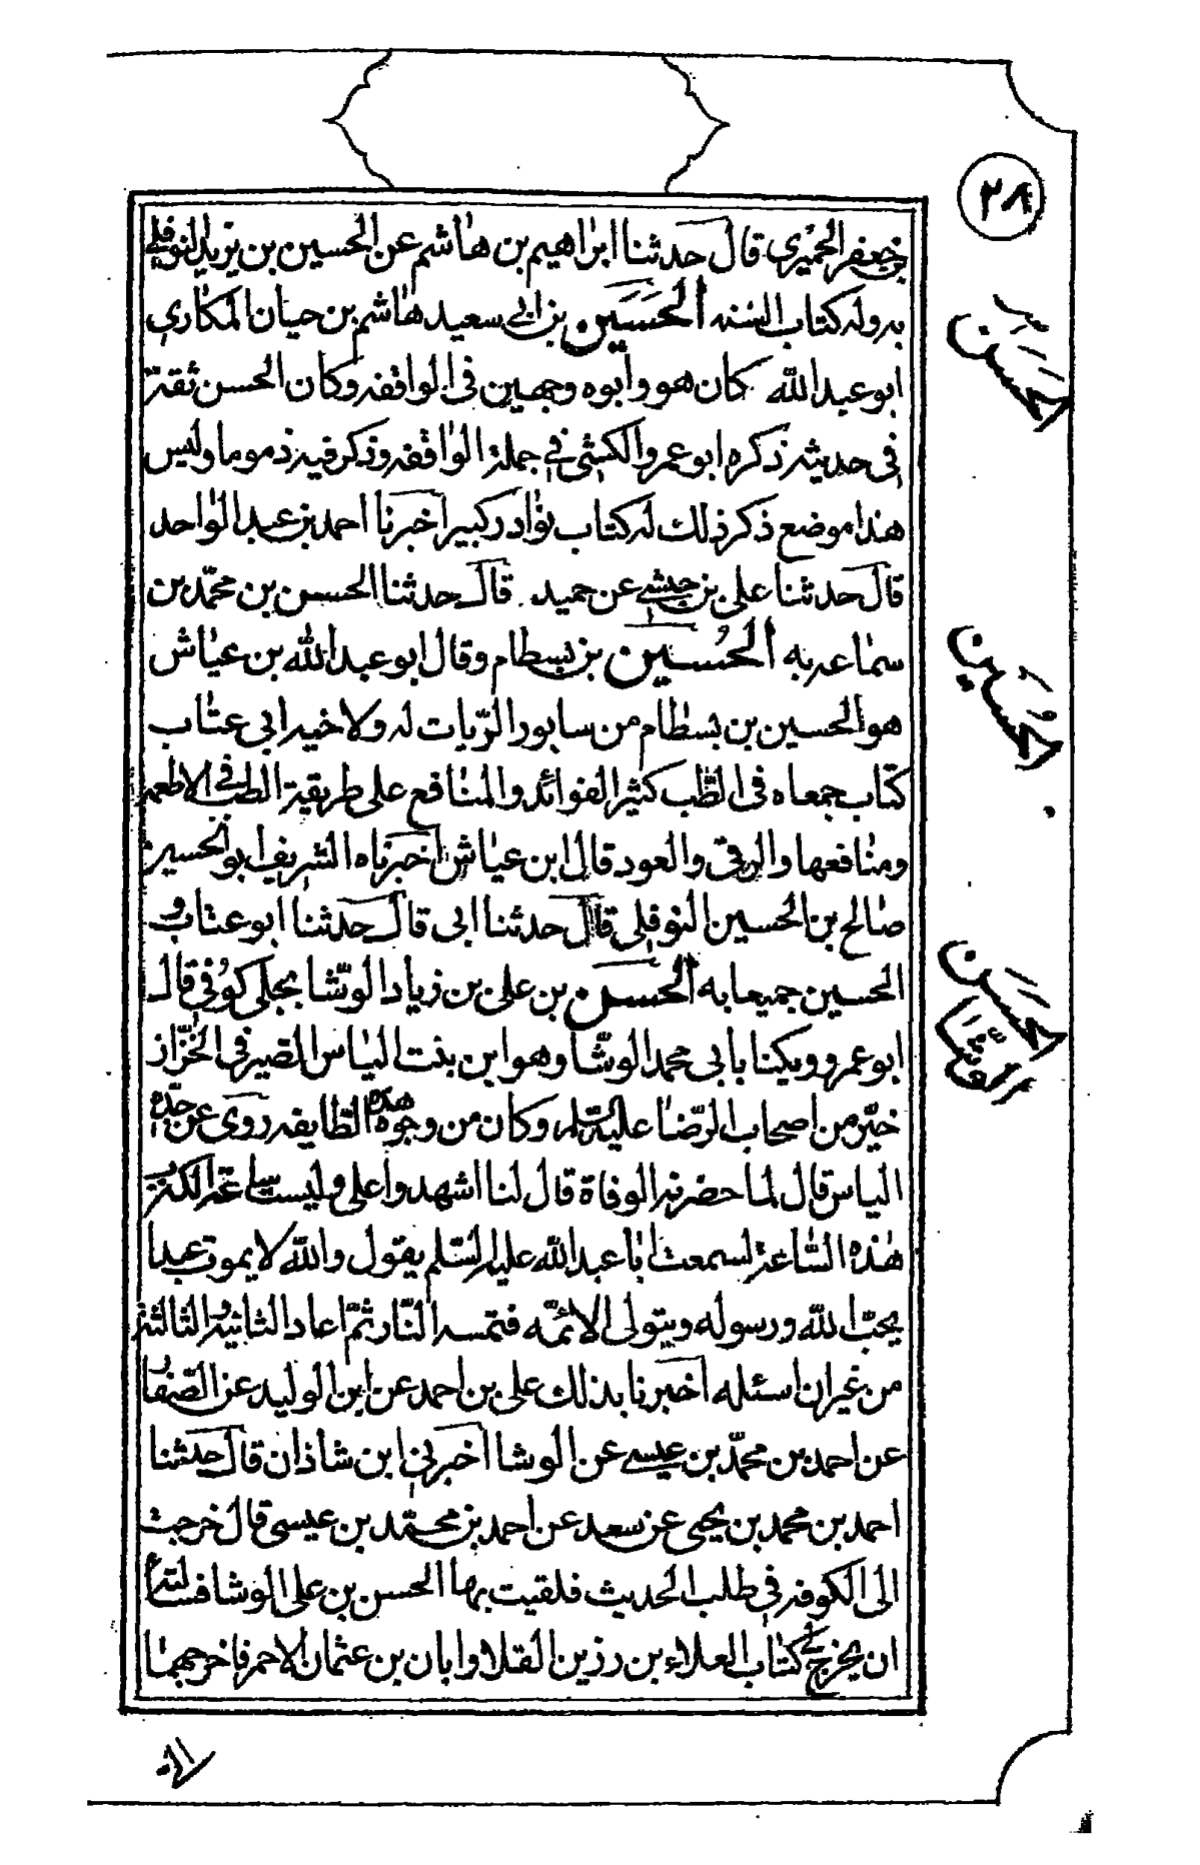 ٢٨
بن جعفر الحميري قال حدثنا ابراهيم بن هاشم عن الحسين بن يزيد النوفلي
به وله كتاب السنه الحسين بن ابي سعيد هاشم بن حيان المكاري
ابو عبد الله كان هو وابوه وجهين في الواقفه وكان الحسن ثقة
في حديثه ذكره ابو عمرو الكشي في جملة الواقفه وذكر فيه ذموما وليس
هذا موضع ذكر ذلك له كتاب نوادر كبير اخبرنا احمد بن عبد الواحد
قال حدثنا علي بن حبشي عن حميد قال حدثنا الحسن بن محمد بن
سماعه به الحسين بن بسطام وقال ابو عبد الله بن عياش
هو الحسين بن بسطام من سابور الزيات له ولاخيه ابي عتاب
كتاب جمعاه في الطب كثير الفوائد والمنافع على طريقة الطب في الاطعمة
ومنافعها والرقى والعود قال ابن عياش اخبرناه الشريف ابو الحسين
صالح بن الحسين النوفلي قال حدثنا ابي قال حدثنا ابو عتاب و
الحسين جميعا به الحسن بن علي بن زياد الوشا بجلي كوفي قال
ابو عمرو ويكنا بابي محمد الوشا وهو ابن بنت الياس الصيرفي الخزاز
خير من اصحاب الرضا عليه السلم وكان من وجوه هذه الطايفه روى عن جده
الياس قال لما حضرته الوفاة قال لنا اشهدوا على وليست ساعة الكذب
هذه الساعة لسمعت ابا عبد الله عليه السلم يقول والله لا يموت عبدا
يحب الله ورسوله ويتولى الائمه فتمسه النار ثم اعاد الثانية والثالثة
من غير ان اسئله اخبرنا بذلك علي بن احمد عن ابن الوليد عن الصفار
عن احمد بن محمد بن عيسى عن الوشا اخبرني ابن شاذان قال حدثنا
احمد بن محمد بن يحيى عن سعد عن احمد بن محمد بن عيسى قال خرجت
الى الكوفه في طلب الحديث فلقيت بها الحسن بن علي الوشا فسالته
ان يخرج لي كتاب العلاء بن رزين القلا وابان بن عثمان الاحمر فاخرجهما
الحسن
الحسين
الحسن
الوشا
الي